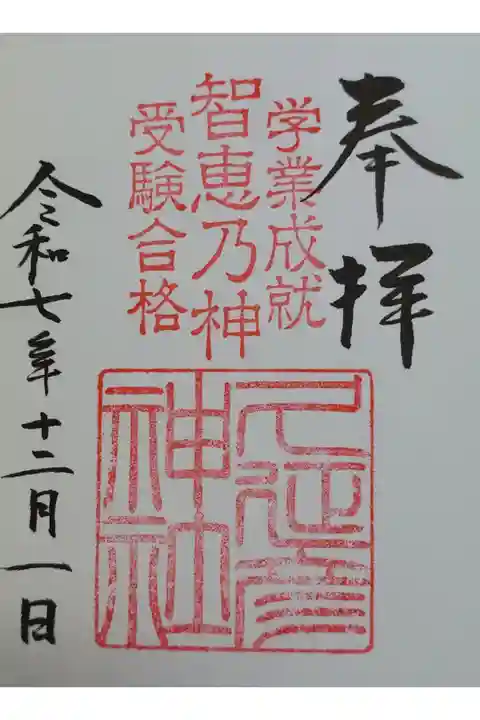 奉拝
学業成就
智恵乃神
受験合格
久延彦
神社
令和七年十二月一日